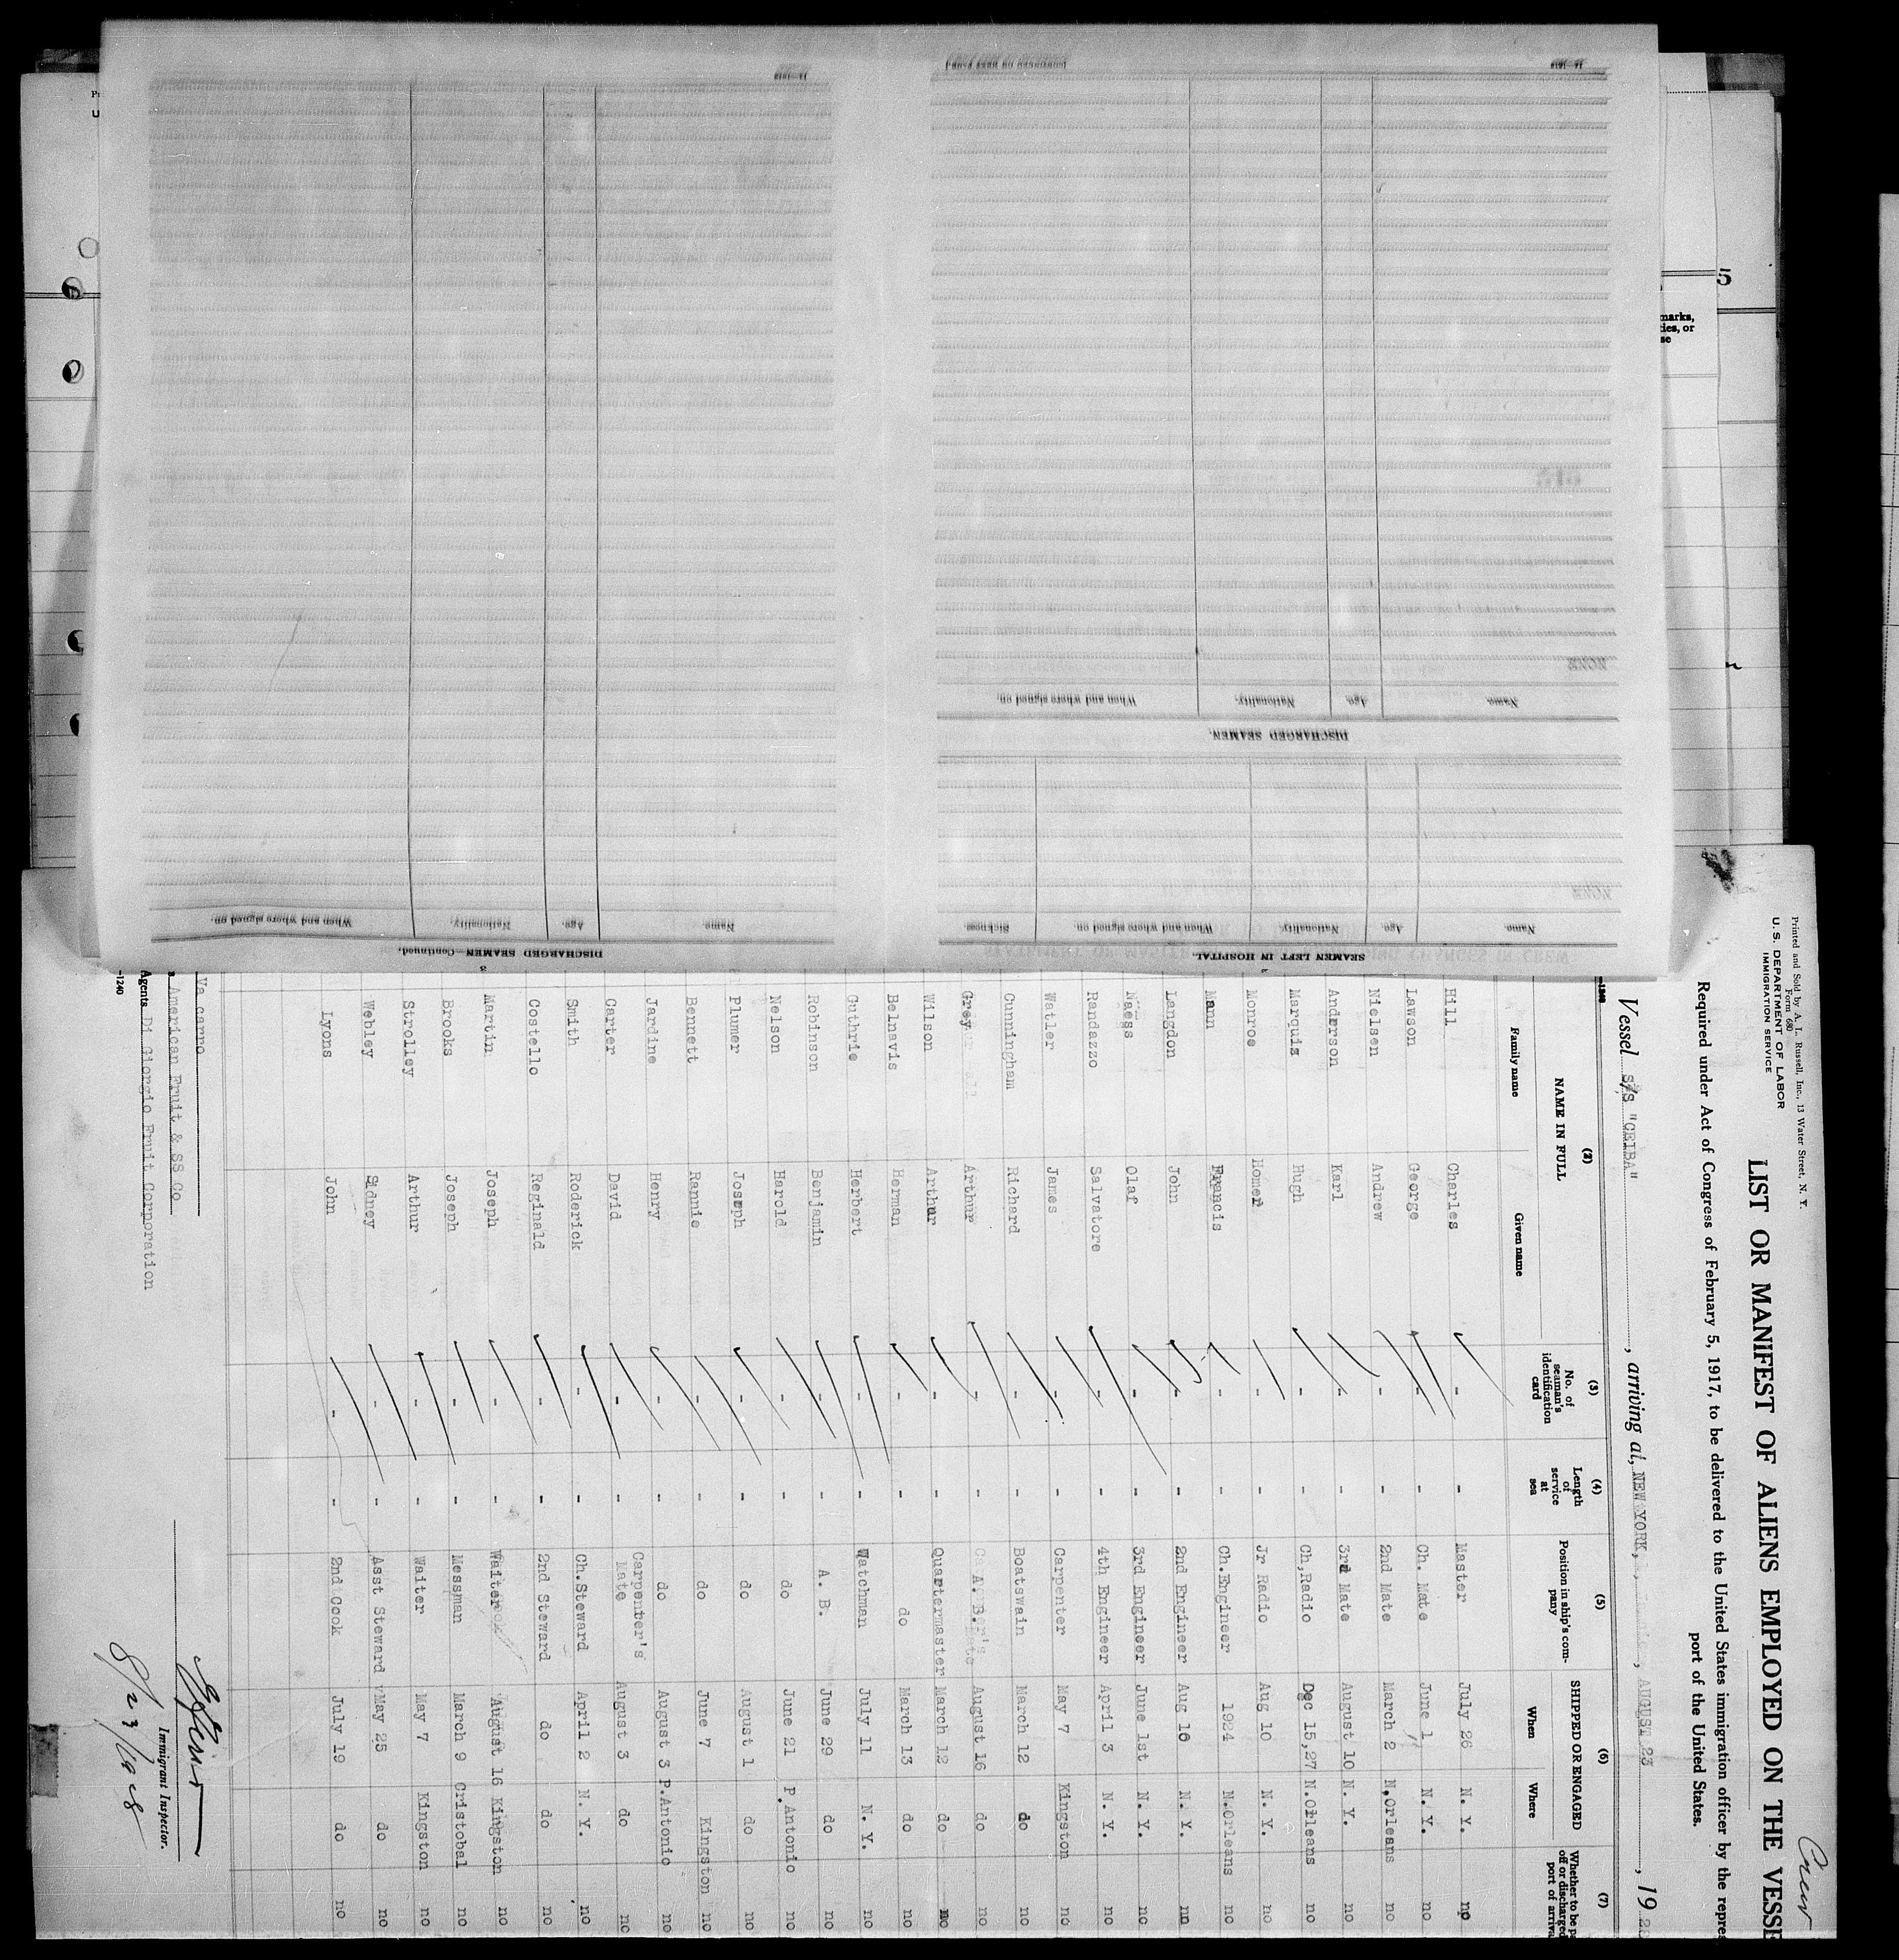 Printed and Sold by A. L. Russell, Inc., 13 Water Street, N. Y.
Form 680
U. S. DEPARTMENT OF LABOR
IMMIGRATION SERVICE
Crew
LIST OR MANIFEST OF ALIENS EMPLOYED ON THE VESSE
Required under Act of Congress of February 5, 1917, to be delivered to the United States immigration officer by the repres
port of the United States.
Vessel S/S "CEIBA", arriving at, NEW YORK, AUGUST 23, 19 28
(2) (3) (4) (5) (6) (7)
NAME IN FULL No. of seaman's identification card Length of service at sea Position in ship's company SHIPPED OR ENGAGED Whether to be p off or discharged port of arriva
Family name Given name When Where
Hill Charles - - Master July 26 N. Y. no
Lawson George - - Ch. Mate June 1 N. Y. no
Nielsen Andrew - - 2nd Mate March 2 N.Orleans no
Anderson Karl - - 3rd Mate August 10 N. Y. no
Marquis Hugh - - Ch,Radio Dec 15,27 N.Orleans no
Monroe Homer - - Jr Radio Aug 10 N. Y. no
Mann Francis - - Ch.Engineer 1924 N.Orleans no
Langdon John - - 2nd Engineer Aug 16 N. Y. no
Naess Olaf - - 3rd Engineer June 1st N. Y. no
Rendazzo Salvatore - - 4th Engineer April 3 N. Y. no
Watler James - - Carpenter May 7 Kingston no
Cunningham Richard - - Boatswain March 12 do no
Grey Arthur - - A. B. August 16 do no
Wilson Arthur - - Quartermaster March 12 do no
Belnavis Herman - - do March 13 do no
Guthrie Herbert - - Watchman July 11 N. Y. no
Robinson Benjamin - - A. B. June 29 do no
Nelson Harold - - do June 21 P Antonio no
Plumer Joseph - - do August 1 do no
Bennett Rannie - - do June 7 Kingston no
Jardine Henry - - do August 3 P.Antonio no
Carter David - - Carpenter's Mate August 3 do no
Smith Roderick - - Ch.Steward April 2 N. Y. no
Costello Reginald - - 2nd Steward do do no
Martin Joseph - - Waiter August 16 Kingston no
Brooks Joseph - - Messman March 9 Cristobal no
Strolley Arthur - - Waiter May 7 Kingston no
Webley Sidney - - Asst Steward May 25 do no
Lyons John - - 2nd Cook July 19 do no
Va carro
American Fruit & SS Co
Agents Di Giorgio Fruit Corporation
-1240
Immigrant Inspector.
8/23/1928
SEAMEN LEFT IN HOSPITAL.
Name. Age. Nationality. When and where signed on. Sickness
NONE
DISCHARGED SEAMEN.
Name. Age. Nationality. When and where signed on.
NONE
3
DISCHARGED SEAMEN—Continued.
Name. Age. Nationality. When and where signed on.
5
marks,
ties, or
se